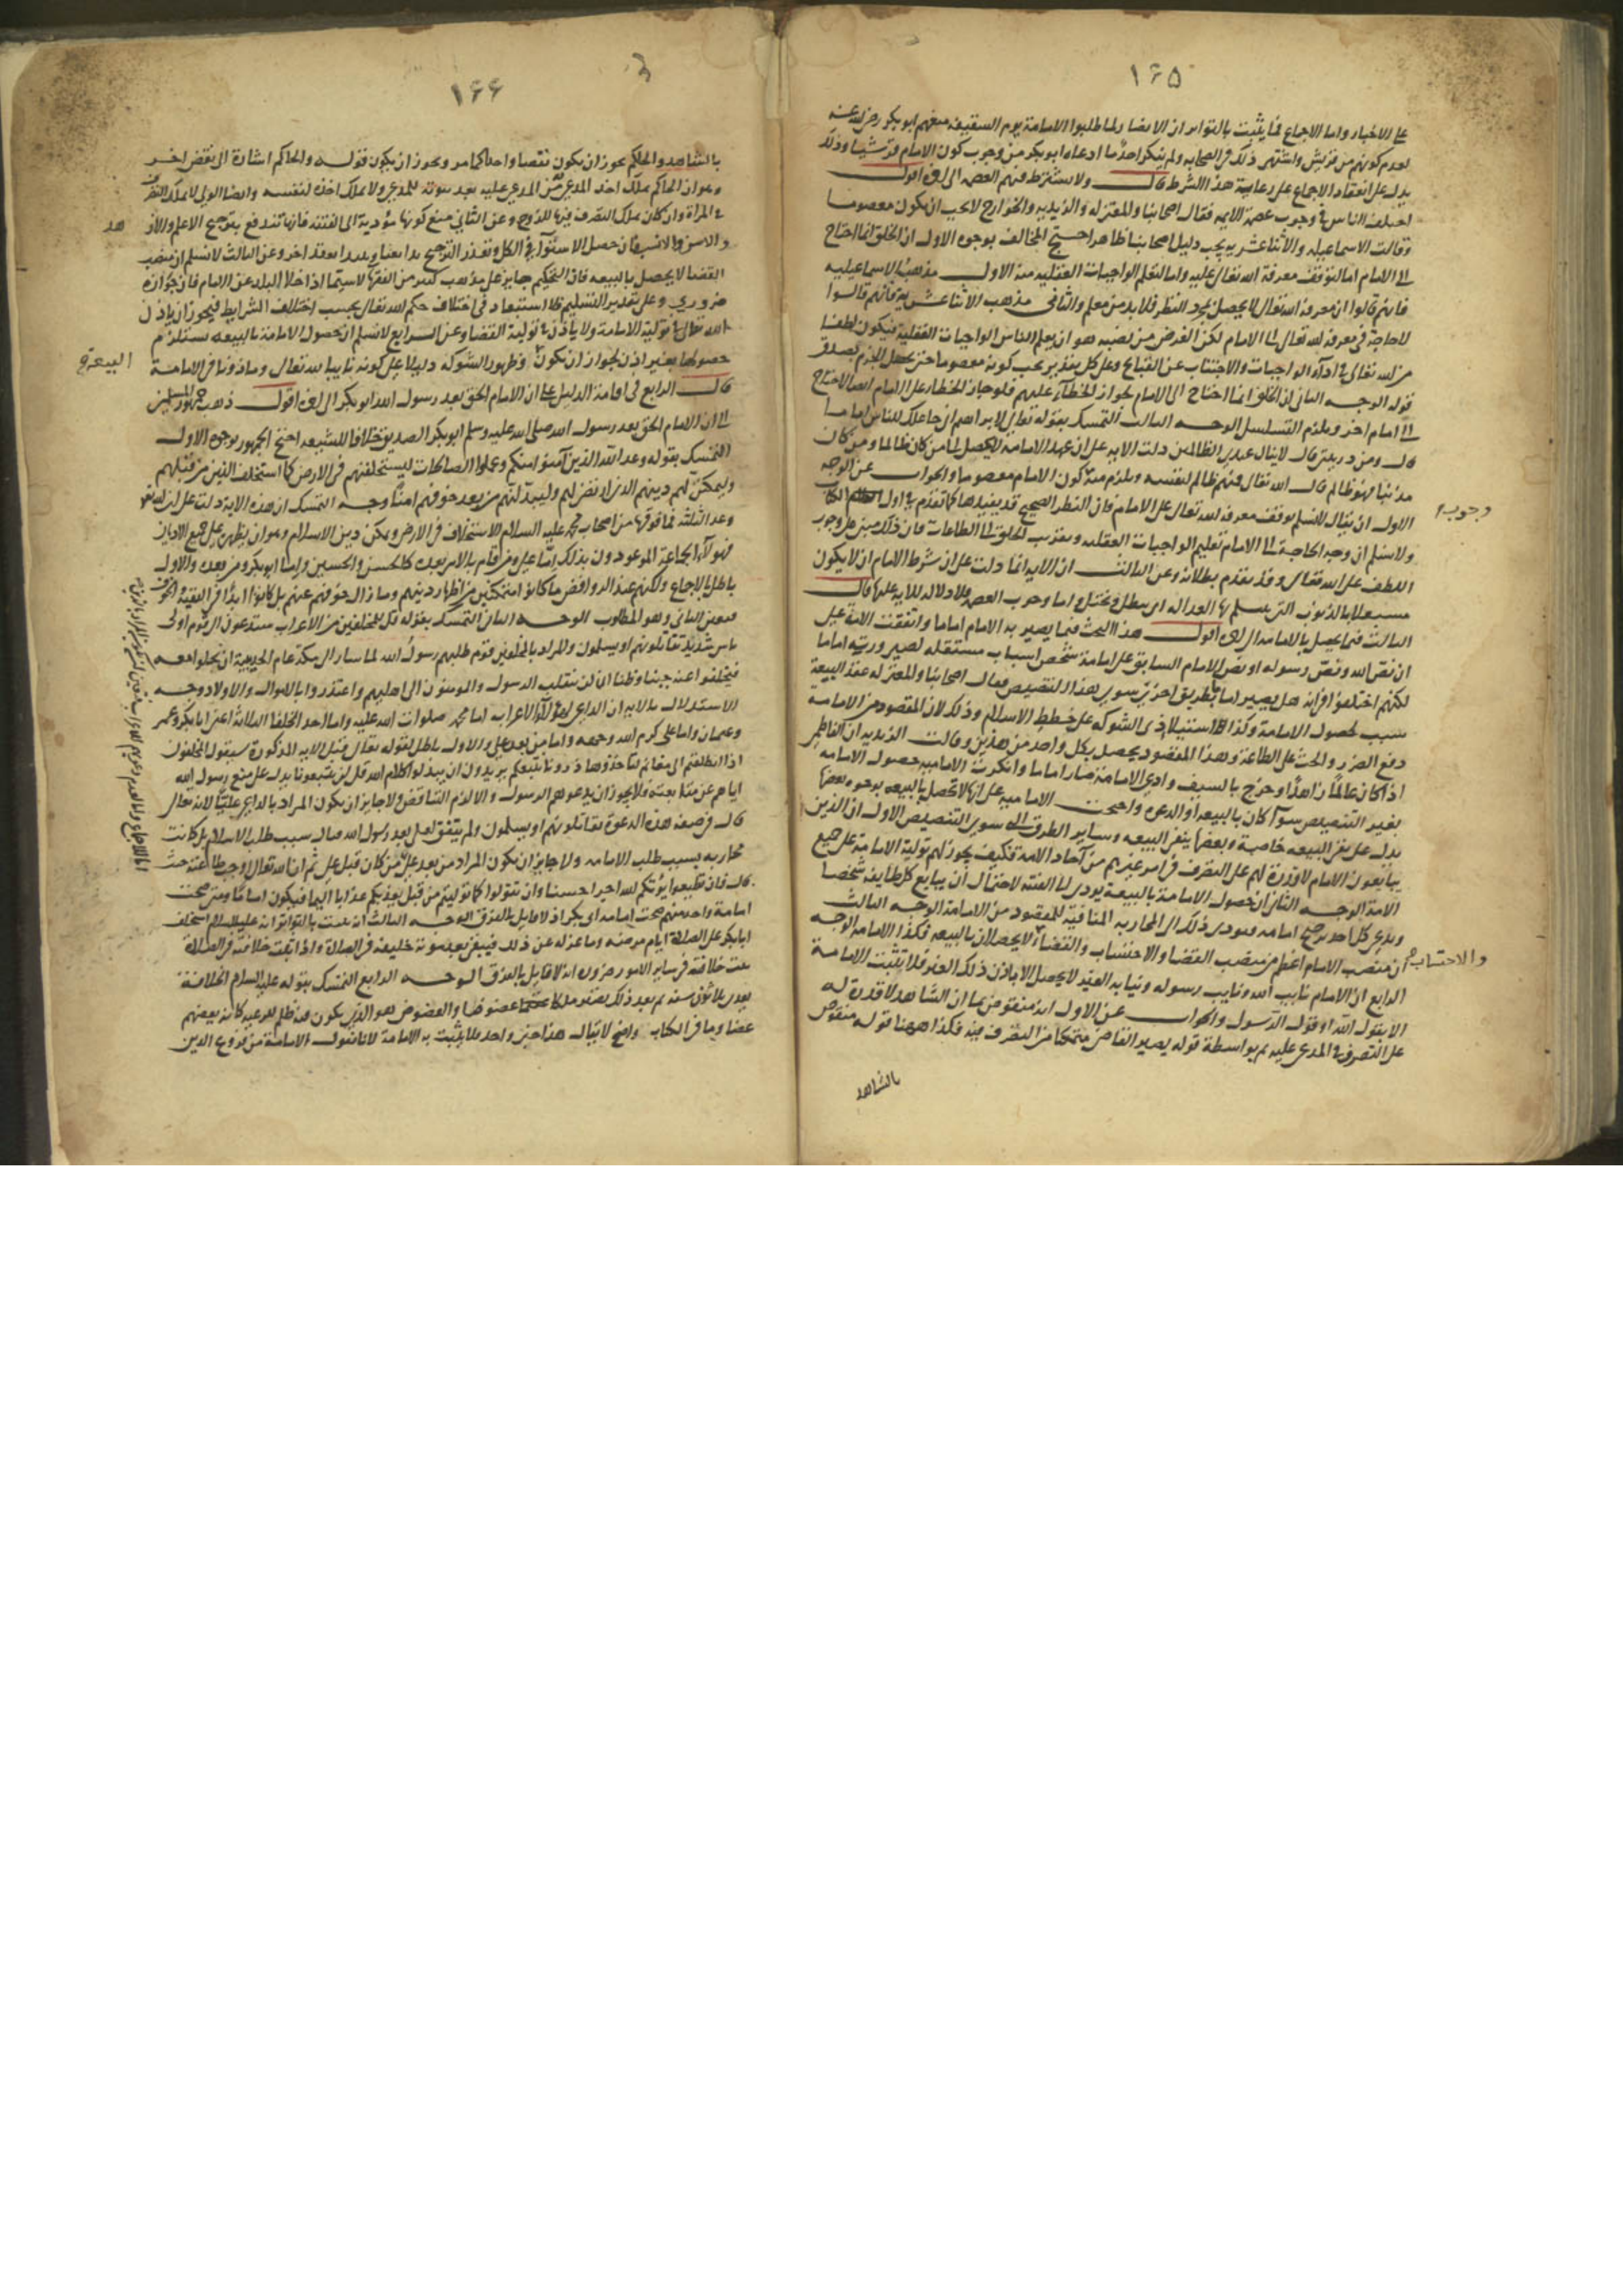 ١٦٥
على الاخبار واما الاجماع فما يثبت بالتواتر ان الانصار لما طلبوا الامامة يوم السقيفة منعهم ابو بكر رضي الله عنه
لعدم كونهم من قريش واشتهر ذلك في الصحابه ولم ينكر احد ما ادعاه ابو بكر من وجوب كون الامام قرشيا وذلك
يدل على انعقاد الاجماع على رعاية هذا الشرط قال ولا يشترط فيهم العصمه الى اخره اقول
اختلف الناس في وجوب عصمة الايمه فقال اصحابنا والمعتزله والزيديه والخوارج لا يجب ان يكون معصوما
وقالت الاسماعيليه والاثنا عشريه يجب دليل اصحابنا ظاهر احتج المخالف بوجوه الاول ان الخلق انما احتاج
الى الامام اما لتوقف معرفة الله تعالى عليه واما لتعلم الواجبات العقليه منه الاول مذهب الاسماعيليه
فانهم قالوا ان معرفة الله تعالى لا يحصل بمجرد النظر فلا بد من معلم والثاني مذهب الاثنا عشريه فانهم قالوا
لا حاجة في معرفة الله تعالى الى الامام لكن الغرض من نصبه هو ان يعلم الناس الواجبات العقلية فيكون لطفا
من الله تعالى في اداء الواجبات والاجتناب عن القبايح وعلى كل تقدير يجب كونه معصوما حتى يحصل الجزم بصدق
قوله الوجه الثاني ان الخلق انما احتاج الى الامام لجواز الخطاء عليهم فلو جاز الخطاء على الامام ايضا لاحتاج
الى امام اخر ويلزم التسلسل الوجه الثالث التمسك بقوله تعالى لابراهيم اني جاعلك للناس اماما
قال ومن ذريتي قال لا ينال عهدي الظالمين دلت الايه على ان عهد الامامه لا يحصل لمن كان ظالما ومن كان
مذنبا فهو ظالم قال الله تعالى فمنهم ظالم لنفسه ويلزم منه كون الامام معصوما والجواب عن الوجه
الاول ان يقال لا نسلم توقف معرفة الله تعالى على الامام فان النظر الصحيح قد يفيدها كما تقدم في اول الكتاب
ولا نسلم ان وجه الحاجة الى الامام تعليم الواجبات العقليه وتقريب الخلق الى الطاعات فان ذلك مبني على وجوب
اللطف على الله تعالى وقد تقدم بطلانه وعن الثالث ان الايه انما دلت على ان شرط الامام ان لا يكون
الثالث فيما يحصل به الامامه الى اخره اقول هذا البحث فيما يصير به الامام اماما واتفقت الامة على
ان نص الله ونص رسوله او نص الامام السابق على امامة شخص اسباب مستقله لصيرورته اماما
لكنهم اختلفوا في انه هل يصير اماما بطريق اخر سوى هذا التنصيص فقال اصحابنا والمعتزله عقد البيعة
سبب لحصول الامامة وكذا استيلاء ذي الشوكه على خطط الاسلام وذلك لان المقصود من الامامة
دفع الضرر والحث على الطاعة وهذا المقصود يحصل بكل واحد من هذين وقالت الزيديه ان الفاطمي
اذا كان عالما زاهدا وخرج بالسيف وادعى الامامة صار اماما وانكرت الاماميه حصول الامامه
بغير التنصيص سواء كان بالبيعه او الدعوه واحتجت الاماميه على انها لا تحصل بالبيعه بوجوه بعضها
يدل على نفي البيعه خاصة وبعضها ينفي البيعه وساير الطرق سوى التنصيص الاول ان الذين
يبايعون الامام لا قدرة لهم على التصرف في امر غيرهم من آحاد الامه فكيف يجوز لهم تولية الامامة على جميع
الامة الوجه الثاني ان حصول الامامة بالبيعة يودي الى الفتنه لاحتمال ان يبايع كل طايفة شخصا
ويدعي كل احد ترجيح امامه فيودي ذلك الى المحاربه المنافية للمقصود من الامامة الوجه الثالث
ان منصب الامام اعظم من منصب القضا والاحتساب والقضا لا يحصلان بالبيعه فكذا الامامه الوجه
الرابع ان الامام نايب الله ونايب رسوله ونيابة الغير لا يحصل الا باذن ذلك الغير فلا يثبت الامامة
الا بقول الله او قول الرسول والجواب عن الاول انه منقوض بما ان الشاهد لا قدرة له
على التصرف في المدعى عليه ثم بواسطة قوله يصير القاضي متمكنا من التصرف فيه فكذا ههنا قوله منقوض
بالشاهد
وجوب
والاحتساب
١٦٦
بالشاهد والحاكم يجوز ان يكون نقضا واحدا كما مر ويجوز ان يكون قوله والحاكم اشارة الى نقض اخر
وهو ان الحاكم يملك اخذ المدعى من المدعى عليه بعد ثبوته للمدعي ولا يملك اخذه لنفسه وايضا الولي لا يملك التصرف
في المراة وان كان يملك التصرف فيها للزوج وعن الثاني منع كونها مؤدية الى الفتنه فانها تندفع بترجيح الاعلم والازهد
القضا لا يحصل بالبيعه فان التحكيم جايز على مذهب كثير من الفقها لا سيما اذا خلا البلد عن الامام فان جوازه
ضروري وعلى تقدير التسليم فلا استبعاد في اختلاف حكم الله تعالى بحسب اختلاف الشرايط فيجوز ان ياذن
الله تعالى في تولية الامامة ولا ياذن في تولية القضا وعن الرابع لا نسلم ان حصول الامامة بالبيعه يستلزم
حصولها بغير اذن لجواز ان يكون وظهور الشوكه دليلا على كونه نايبا لله تعالى وماذونا في الامامة
البيعة
قال الرابع في اقامة الدليل على ان الامام الحق بعد رسول الله ابو بكر الى اخره اقول ذهب جمهور المسلمين
الى ان الامام الحق بعد رسول الله صلى الله عليه وسلم ابو بكر الصديق خلافا للشيعه احتج الجمهور بوجوه الاول
التمسك بقوله وعد الله الذين آمنوا منكم وعملوا الصالحات ليستخلفنهم في الارض كما استخلف الذين من قبلهم
وليمكنن لهم دينهم الذي ارتضى لهم وليبدلنهم من بعد خوفهم امنا وجه التمسك ان هذه الاية دلت على ان الله تعالى
وعد الثلثة فما فوقها من اصحاب محمد عليه السلام الاستخلاف في الارض وتمكين دين الاسلام وهو ان يظهر على جميع الاديان
فهولاء الجماعة الموعودون بذلك اما علي ومن قام بالامر بعده كالحسن والحسين واما ابو بكر ومن بعده والاول
باطل بالاجماع ولكنهم عند الروافض ما كانوا متمكنين من اظهار دينهم وما زال خوفهم عنهم بل كانوا ابدا في التقية والخوف
فتعين الثاني وهو المطلوب الوجه الثاني التمسك بقوله قل للمخلفين من الاعراب ستدعون الى قوم اولى
باس شديد تقاتلونهم او يسلمون والمراد بالمخلفين قوم طلبهم رسول الله لما سار الى مكة عام الحديبية ان يخلوا معه
فتخلفوا عنه جبنا وظنا ان لن ينقلب الرسول والمومنون الى اهليهم واعتذروا بالاموال والاولاد وجه
الاستدلال بالايه ان الداعي لهؤلاء الاعراب اما محمد صلوات الله عليه واما احد الخلفا الثلاثة اعني ابا بكر وعمر
وعثمان واما علي كرم الله وجهه واما من بعد علي والاول باطل لقوله تعالى قبل الايه المذكورة سيقول المخلفون
اذا انطلقتم الى مغانم لتاخذوها ذرونا نتبعكم يريدون ان يبدلوا كلام الله قل لن تتبعونا يدل على منع رسول الله
اياهم عن متابعته فلا يجوز ان يدعوهم الرسول والا لزم التناقض ولا جايز ان يكون المراد بالداعي عليا لانه تعالى
قال في صفة هذه الدعوة تقاتلونهم او يسلمون ولم يتفق لعلي بعد رسول الله قتال بسبب طلب الاسلام بل كانت
محاربه بسبب طلب الامامه ولا جايز ان يكون المراد من بعد علي فتعين من كان قبل علي ثم ان الله تعالى اوجب طاعته حيث
قال فان تطيعوا يؤتكم الله اجرا حسنا وان تتولوا كما توليتم من قبل يعذبكم عذابا اليما فيكون اماما ومتى صحت
امامة واحد منهم صحت امامة ابي بكر اذ لا قايل بالفرق الوجه الثالث انه ثبت بالتواتر انه عليه السلام استخلف
ابا بكر على الصلاة ايام مرضه وما عزله عن ذلك فيبقى بعد موته خليفة في الصلاة واذا ثبت خلافته في الصلاة
ثبت خلافته في ساير الامور ضرورة انه لا قايل بالفرق الوجه الرابع التمسك بقوله عليه السلام الخلافة
بعدي ثلاثون سنه ثم بعد ذلك يصير ملكا عضوضا والعضوض هو الذي يكون فيه ظلم للرعيه كانه يعضهم
عضا وما في الكتاب واضح لا يقال هذا خبر واحد فلا يثبت به الامامة لانا نقول الامامة من فروع الدين